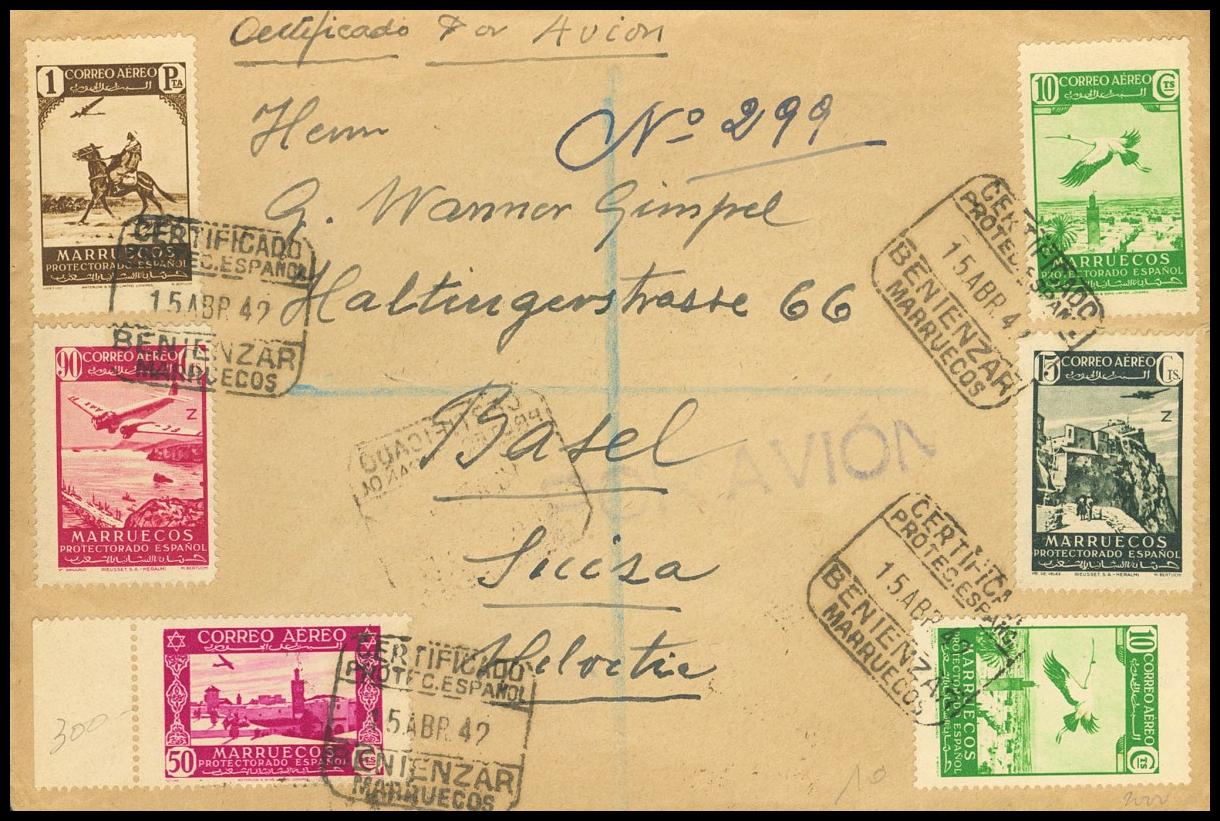 Certificado Por Avion
Herrn
Nº 299
G. Wanner Gimpel
Haltingerstrasse 66
Basel
Suiza
Helvetia
AVIÓN
1 CORREO AÉREO PTA
MARRUECOS
PROTECTORADO ESPAÑOL
CERTIFICADO
PROTEC.ESPAÑOL
15 ABR. 42
BENIENZAR
MARRUECOS
90 CORREO AÉREO
MARRUECOS
PROTECTORADO ESPAÑOL
CORREO AÉREO
MARRUECOS
50 PROTECTORADO ESPAÑOL CTS
300-
CERTIFICADO
PROTEC.ESPAÑOL
15 ABR. 42
BENIENZAR
MARRUECOS
10 CORREO AÉREO CTS
MARRUECOS
PROTECTORADO ESPAÑOL
15 ABR. 4
BENIENZAR
MARRUECOS
15 CORREO AÉREO CTS.
MARRUECOS
PROTECTORADO ESPAÑOL
RIEUSSET, S.A. - HERALMI
PROTEC.ESPAÑOL
15 ABR
BENIENZAR
MARRUECOS
10 CORREO AÉREO CTS
MARRUECOS
PROTECTORADO ESPAÑOL
10